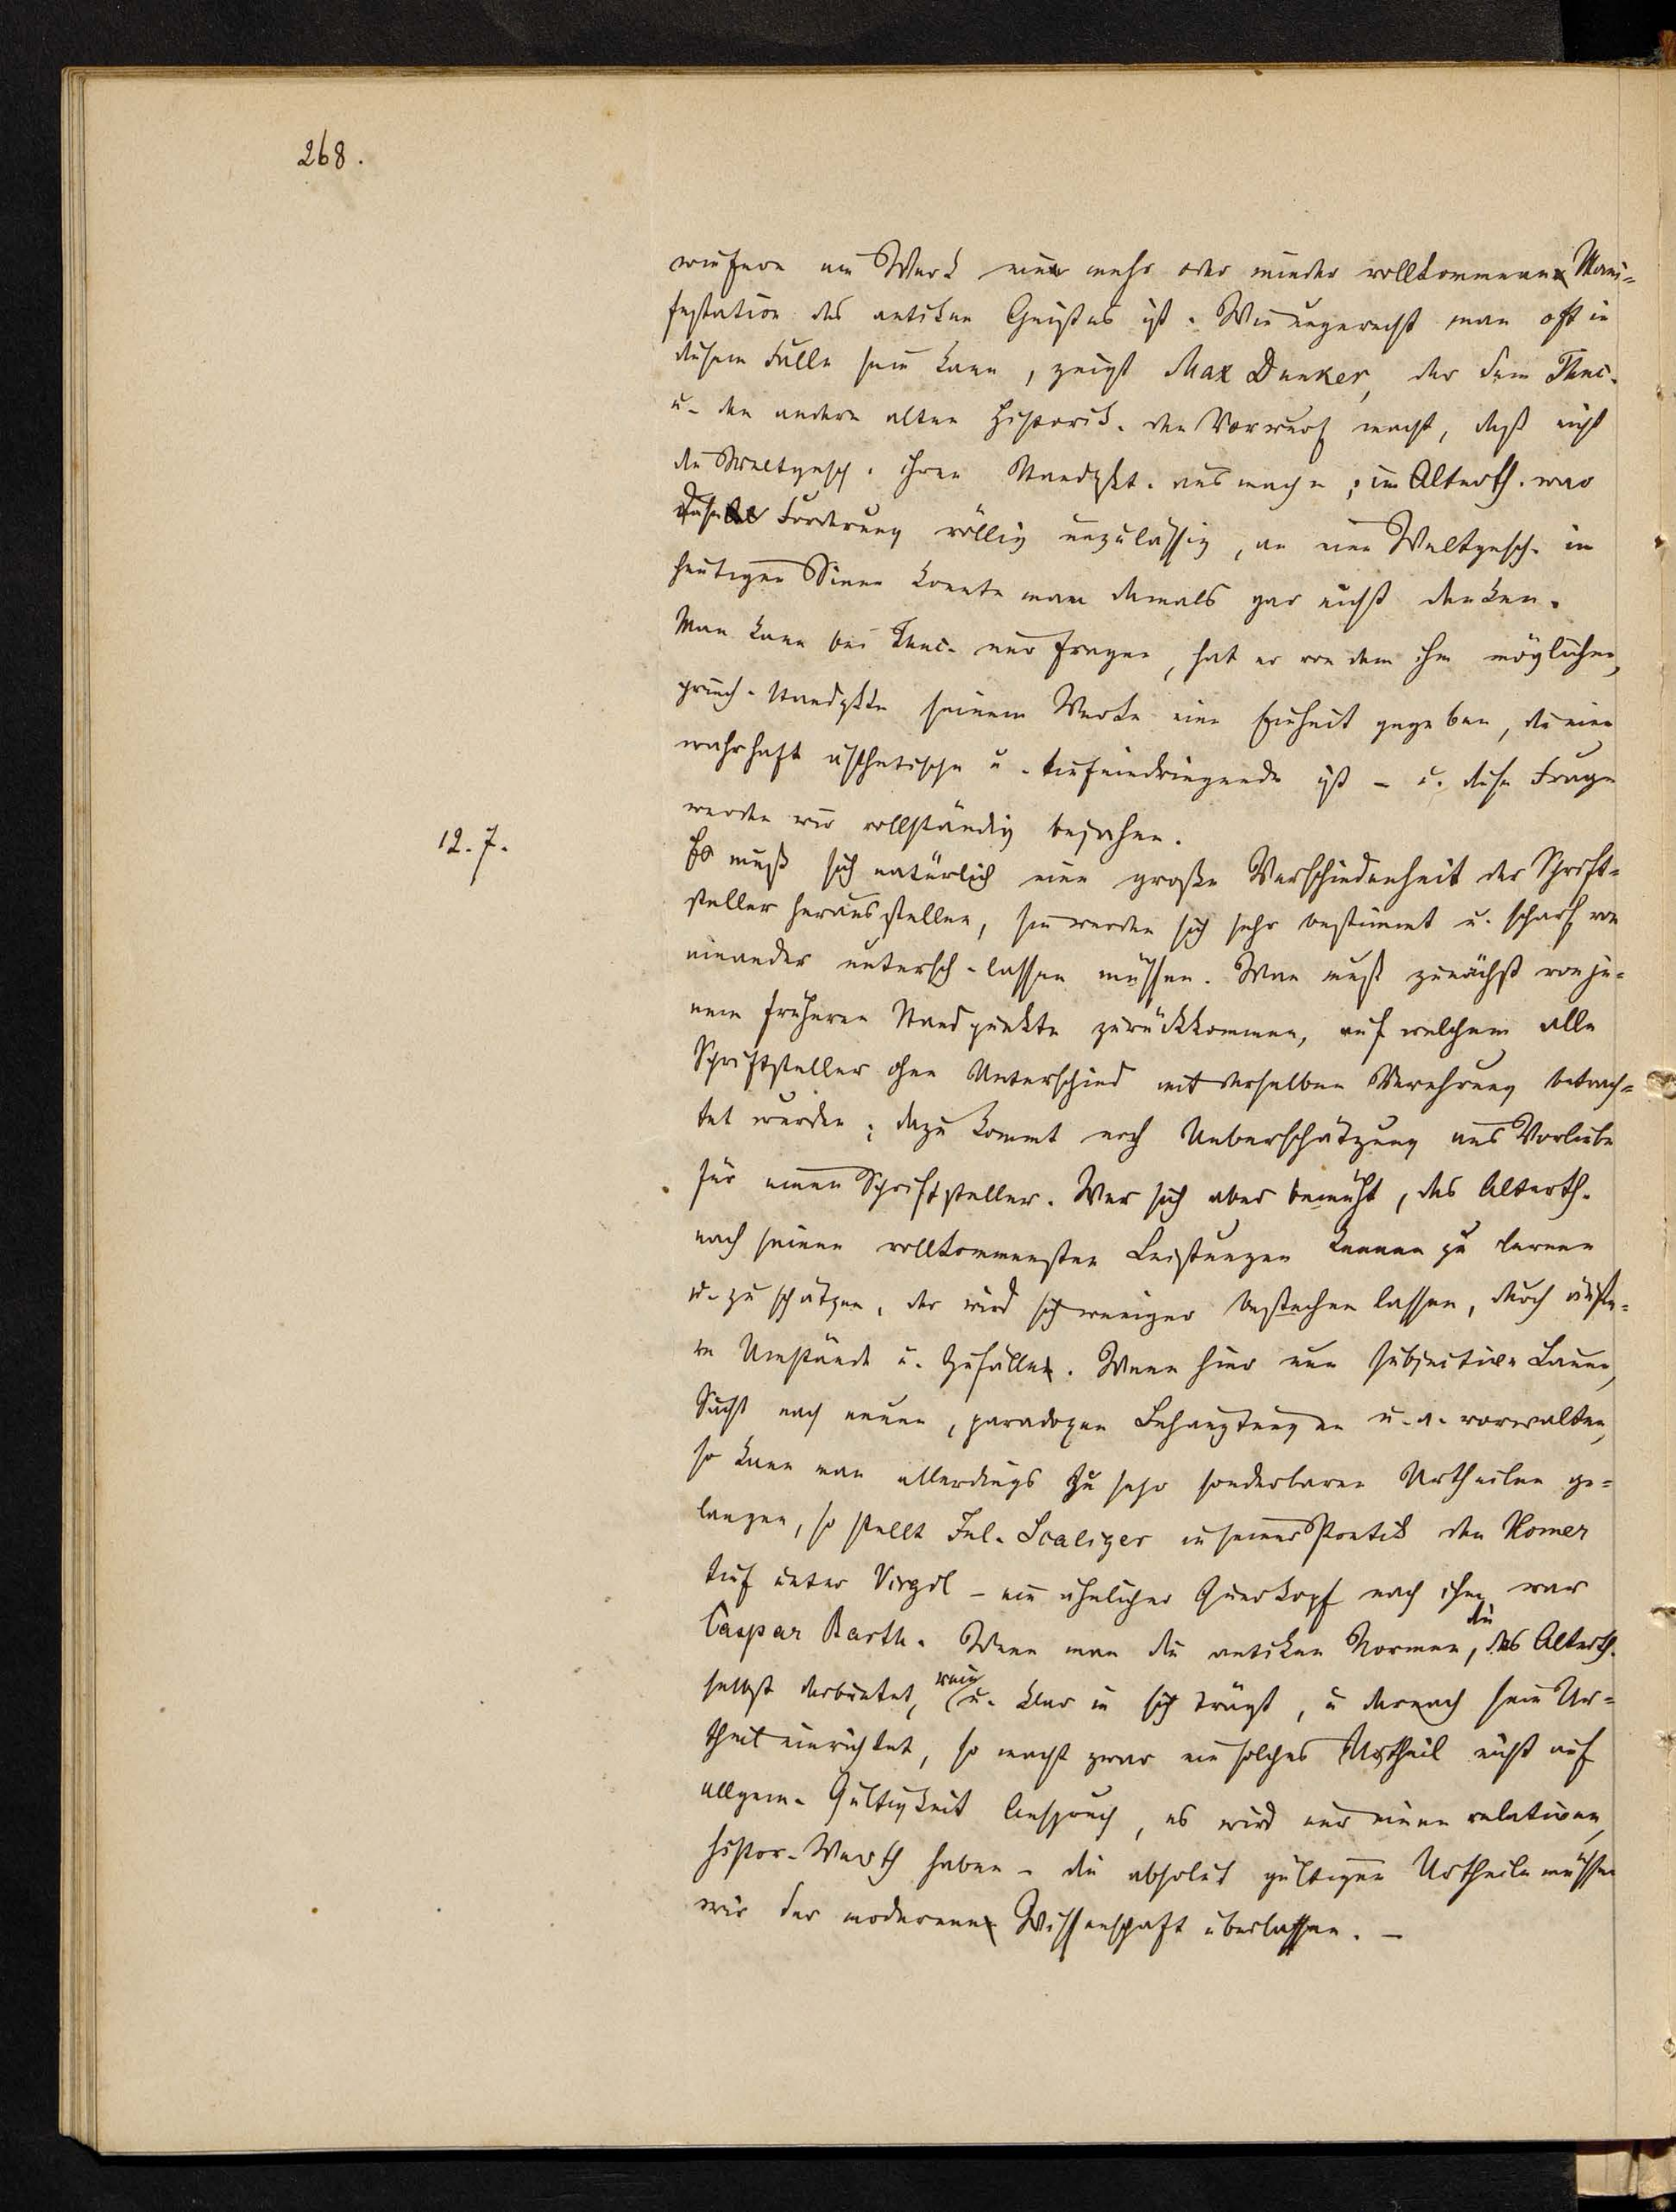 268.
wiefern ein Werk eine mehr oder minder vollkommene Mani=
festation des antiken Geistes ist. Wie ungerecht man oft in
diesem Falle sein kann, zeigt Max Dunker, der dem Thuc.
u. den andern alten Historik. den Vorwurf macht, daß nicht
die Weltgesch. ihren Standpkt. ausmache; im Alterth. war
diese Forderung völlig unzulässig, an eine Weltgesch. im
heutigen Sinne konnte man damals gar nicht denken.
Man kann bei Thuc. nur fragen, hat er von dem ihm möglichen,
griech. Standpkte seinem Werke eine Einheit gegeben, die eine
wahrhaft ästhetische u. tiefeindringende ist – u. diese Frage
werden wir vollständig bejahen.
12.7.
Es muß sich natürlich eine große Verschiedenheit der Schrift=
steller herausstellen, sie werden sich sehr bestimmt u. scharf von
einander untersch. lassen müssen. Man muß zunächst von je=
nem früheren Standpunkte zurückkommen, auf welchem alle
Schriftsteller ohne Unterschied mit derselben Verehrung betrach=
tet wurden; dazu kommt noch Ueberschätzung aus Vorliebe
für einen Schriftsteller. Wer sich aber bemüht, das Alterth.
nach seinen vollkommensten Leistungen kennen zu lernen
u. zu schätzen, der wird sich weniger bestechen lassen, durch äuße=
re Umstände u. Zufälle. Wenn hier nun subjective Laune,
Sucht nach neuen, paradoxen Behauptungen u. a. vorwalten,
so kann man allerdings zu sehr sonderbaren Urtheilen ge=
langen, so stellt Jul. Scaliger in seiner Poetik den Homer
tief unter Virgil – ein ähnlicher Querkopf nach ihm war
Caspar Barth. Wenn man die antiken Normen, die das Alterth.
selbst darbietet, rein u. klar in sich trägt, u danach sein Ur=
theil einrichtet, so macht zwar ein solches Urtheil nicht auf
allgem. Gültigkeit Anspruch, es wird nur einen relativen,
histor. Werth haben – die absolut gültigen Urtheile müssen
wir der modernen Wissenschaft überlassen. –